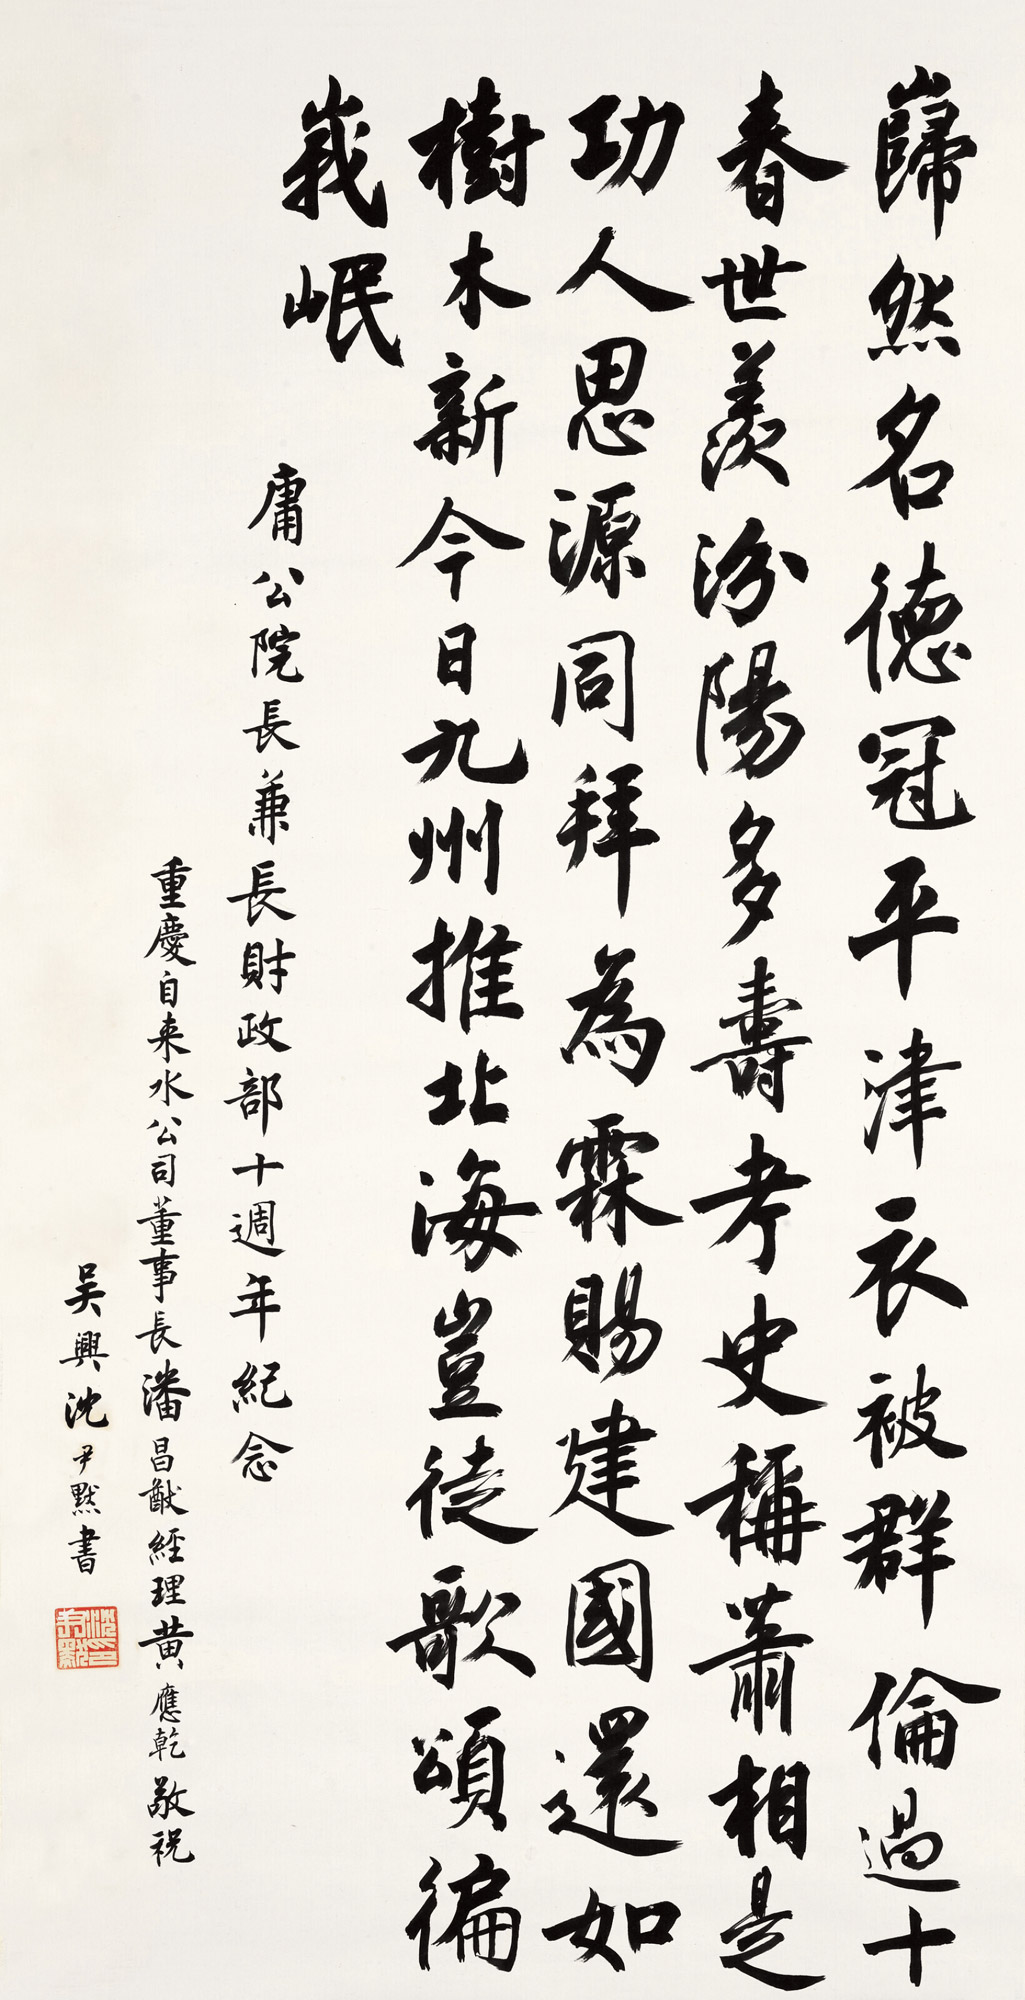 巋然名德冠平津衣被群倫過十
春世羡汾陽多壽考史稱蕭相是
功人思源同拜為霖賜建國還如
樹木新今日九州推北海豈徒歌頌徧
峩岷
庸公院長兼長財政部十週年紀念
重慶自来水公司董事長潘昌猷經理黄應乾敬祝
吴興沈尹默書
沈尹默印